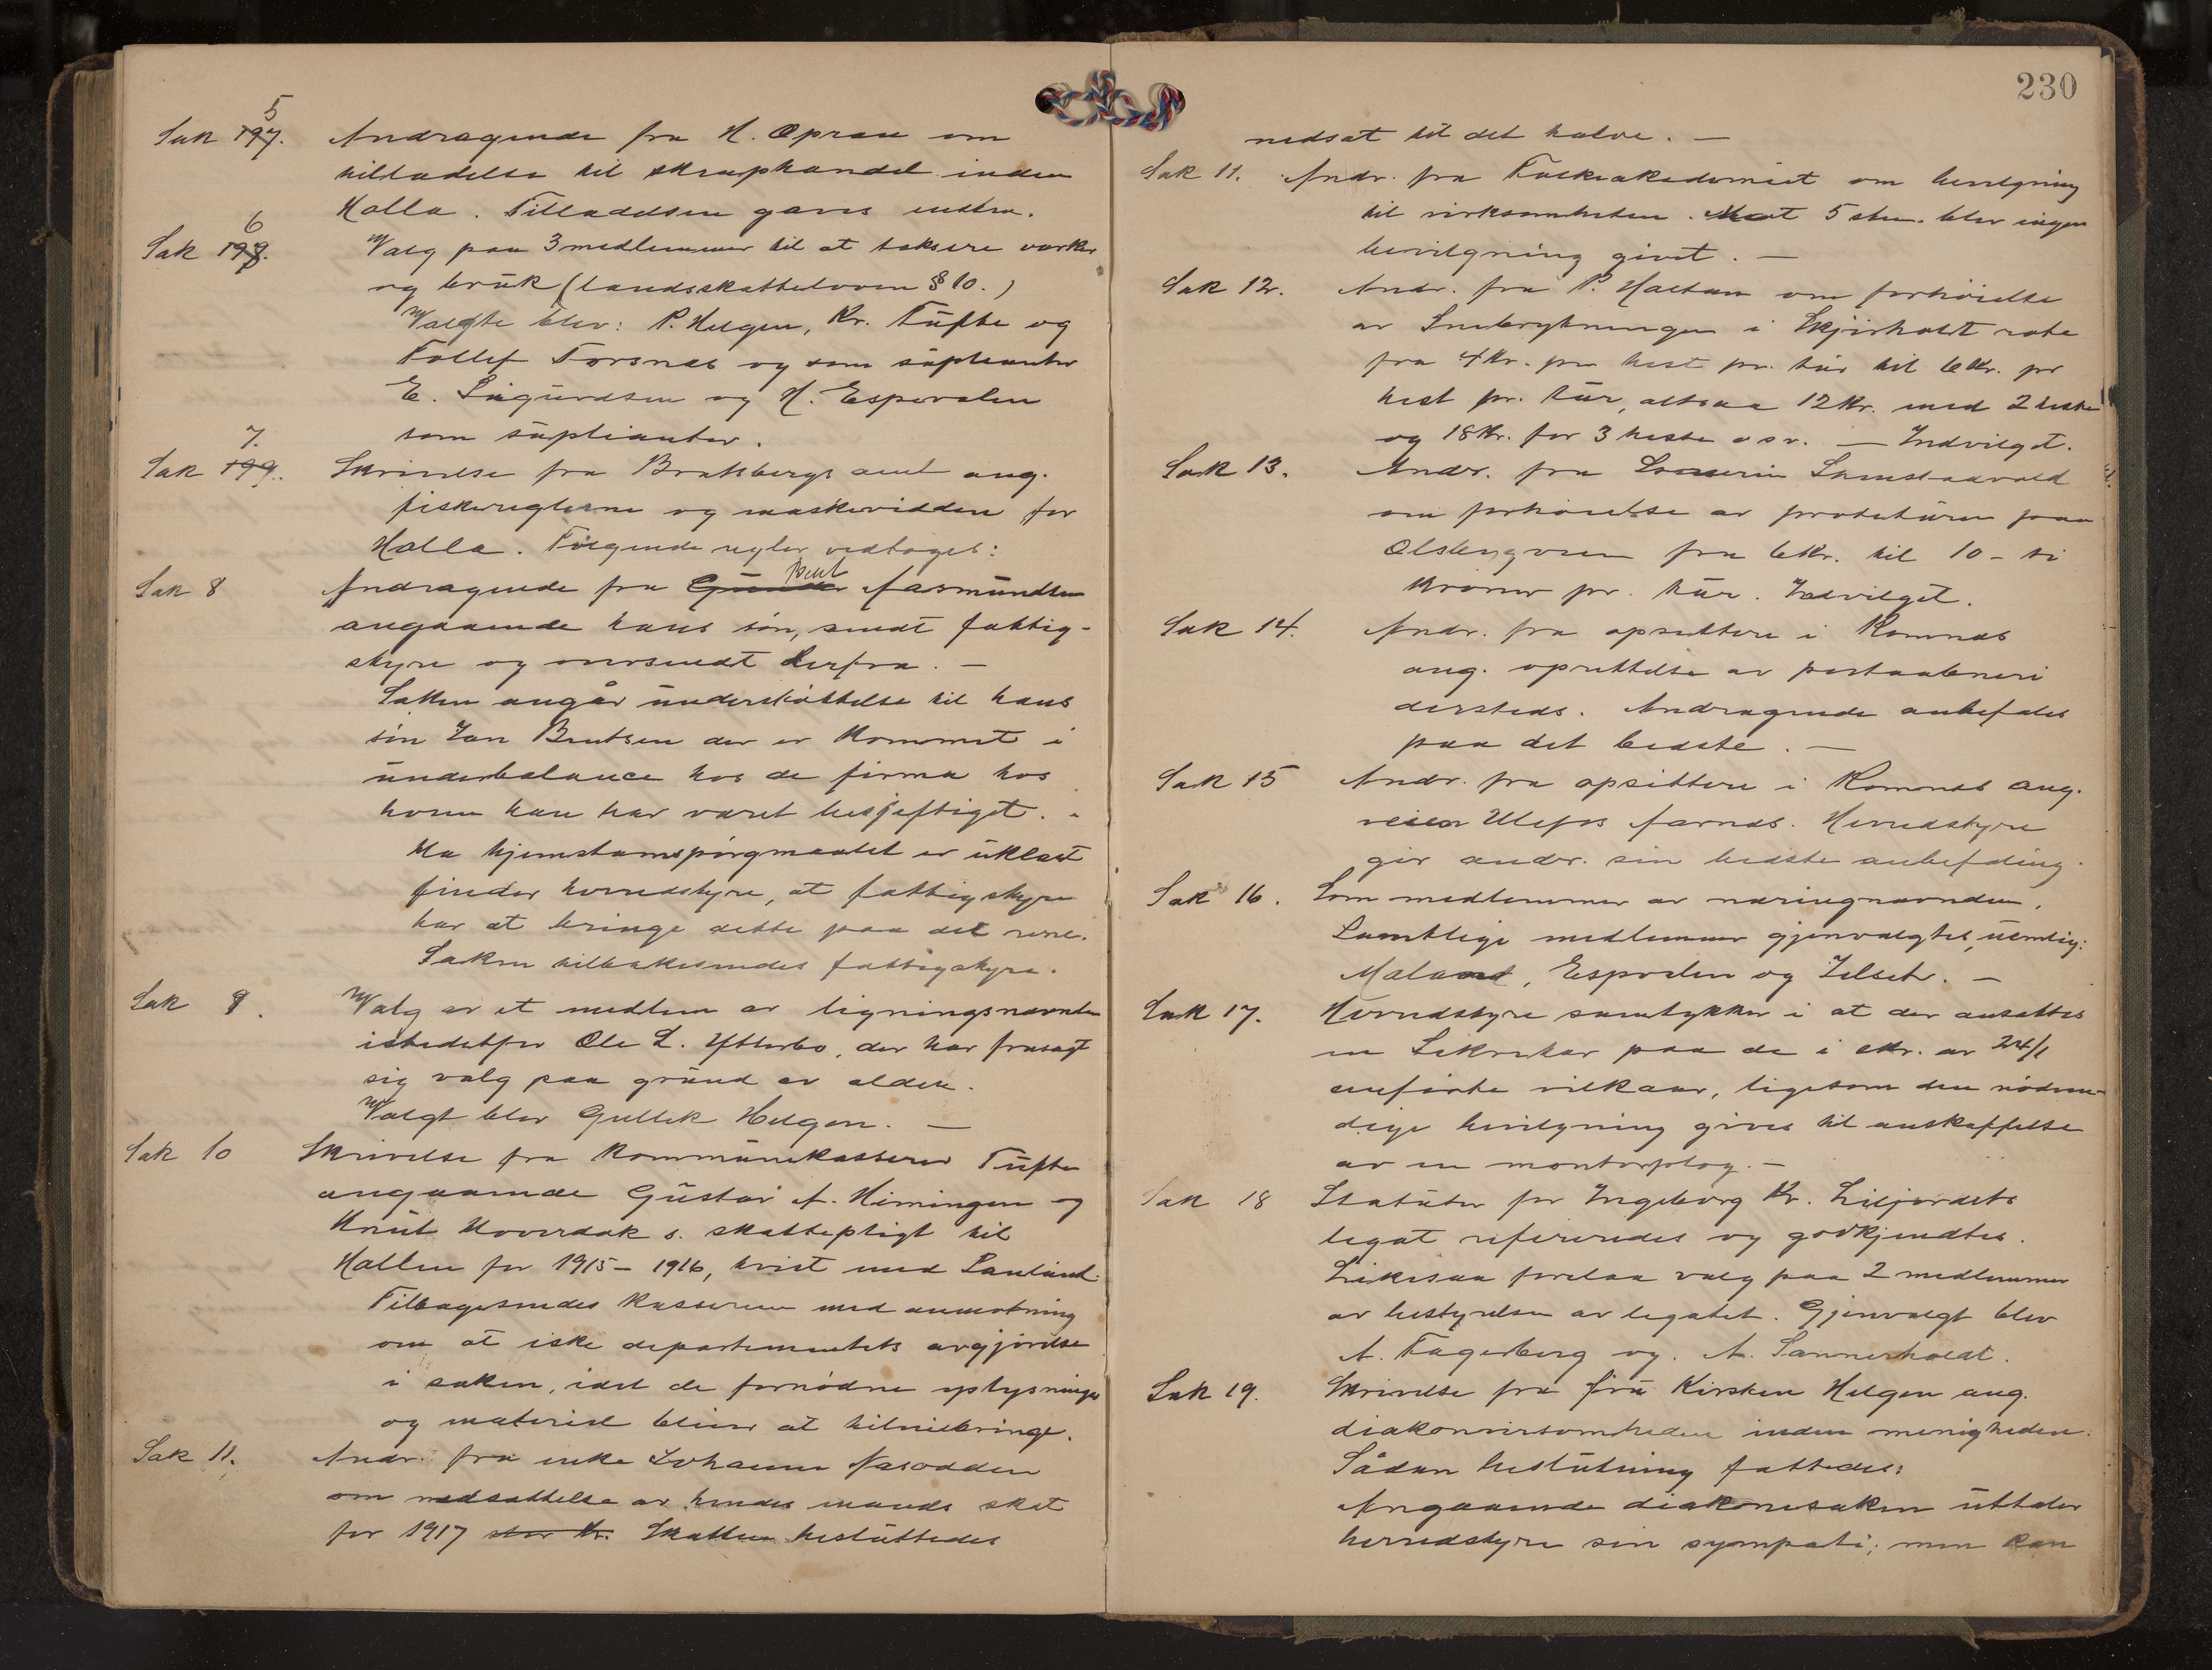 Sak 197. 5 Andragende fra H. Opran om
tilladelse til skraphandel inden
Holla. Tilladelsen gaves enstm.
Sak 198. 6 Valg paa 3 medlemmer til at taksere verker
og bruk (landsskatteloven § 10.)
Valgte blev: P. Helgen, Kr. Tufte og
Tollef Torsnes og som supleanter
E. Sigurdsen og H. Espedalen
som suplianter.
Sak 199. 7. Skrivelse fra Bratsbergs amt ang.
fiskereglerne og maskevidden for
Holla. Følgende regler vedtoges:
Sak 8 Andragende fra Gunder Bent Aasmundsen
angaaende hans søn, sendt fattig-
styre og oversendt derfra. –
Saken angår understøttelse til hans
søn Jan Bentsen der er kommet i
underbalance hos de firma hos
hvem han har været beskjeftiget. –
Da hjemstamspørgmaalet er uklart
finder herredstyre, at fattigstyre
har at bringe dette paa det rene.
Saken tilbakesendes fattigstyre.
Sak 9. Valg av et medlem av ligningsnevnden
istedetfor Ole L. Ytterbø, der har frasagt
sig valg paa grund av alden.
Valgt blev Gullik Helgen. –
Sak 10 Skrivelse fra kommunekasserer Tufte
angaaende Gustav A. Himingen og
Knut Hoverdak s. skattepligt til
Hollen for 1915 – 1916, tvist med Sauland.
Tilbagesendes kassereren med anmodning
om at iske departementets avgjørelse
i saken, idet de fornødne oplysninger
og materiel blir at tilveiebringe.
Sak 11. Andr. fra enke Johanne Nasodden
om nedsættelse av hendes mands skat
for 1917 stor kr. Skatten besluttedes
230
nedsat til det halve. –
Sak 11. Andr. fra Folkeakademiet om bevilgning
til virksomheten. Mot 5 stem. blev ingen
bevilgning givet. –
Sak 12. Andr. fra P. Haltan om forhøielse
av Snebrytningen i Skjirholdt rode
fra 4 kr. pr hest pr. tur til 6 kr. pr
hest pr. tur, altsaa 12 kr. med 2 heste
og 18 kr. for 3 heste o s v. – Indvilget.
Sak 13. Andr. fra
om forhøielse av plogturen paa
Olsbrygveien fra 6 kr. til 10 – ti
kroner pr. tur. Indvilget.
Sak 14. Andr. fra opsittere i Romnes
ang. oprettelse av postaabneri
dersteds. Andragende anbefales
paa det bedste. –
Sak 15 Andr. fra opsittere i Romnes ang.
veien Ulefos Aarnes. Herredstyre
gir andr. sin bedste anbefaling.
Sak 16. Som medlemmer av næringnevnden.
Samtlige medlemmer gjenvalgtes, nemlig:
Maland, Espedalen og Jelseth. –
Sak 17. Herredstyre samtykker i at der ansættes
en Sekretær paa de i skr. av 24/1
anførte vilkaar, ligesom den nødven-
dige bevilgning gives til anskaffelse
av en
Sak 18 Statuter for Ingeborg Kr. Liljordets
legat refereredes og godkjendtes.
Likesaa forelaa valg paa 2 medlemmer
av bestyrelsen av legatet. Gjenvalgt blev
A. Fagerberg og A. Sannerholdt.
Sak 19. Skrivelse fra fru Kirsten Helgen ang.
diakonvirsomheden inden menigheden.
Sådan beslutning fattedes:
Angaaende diakonesaken uttaler
herredstyre sin sympati; men kan